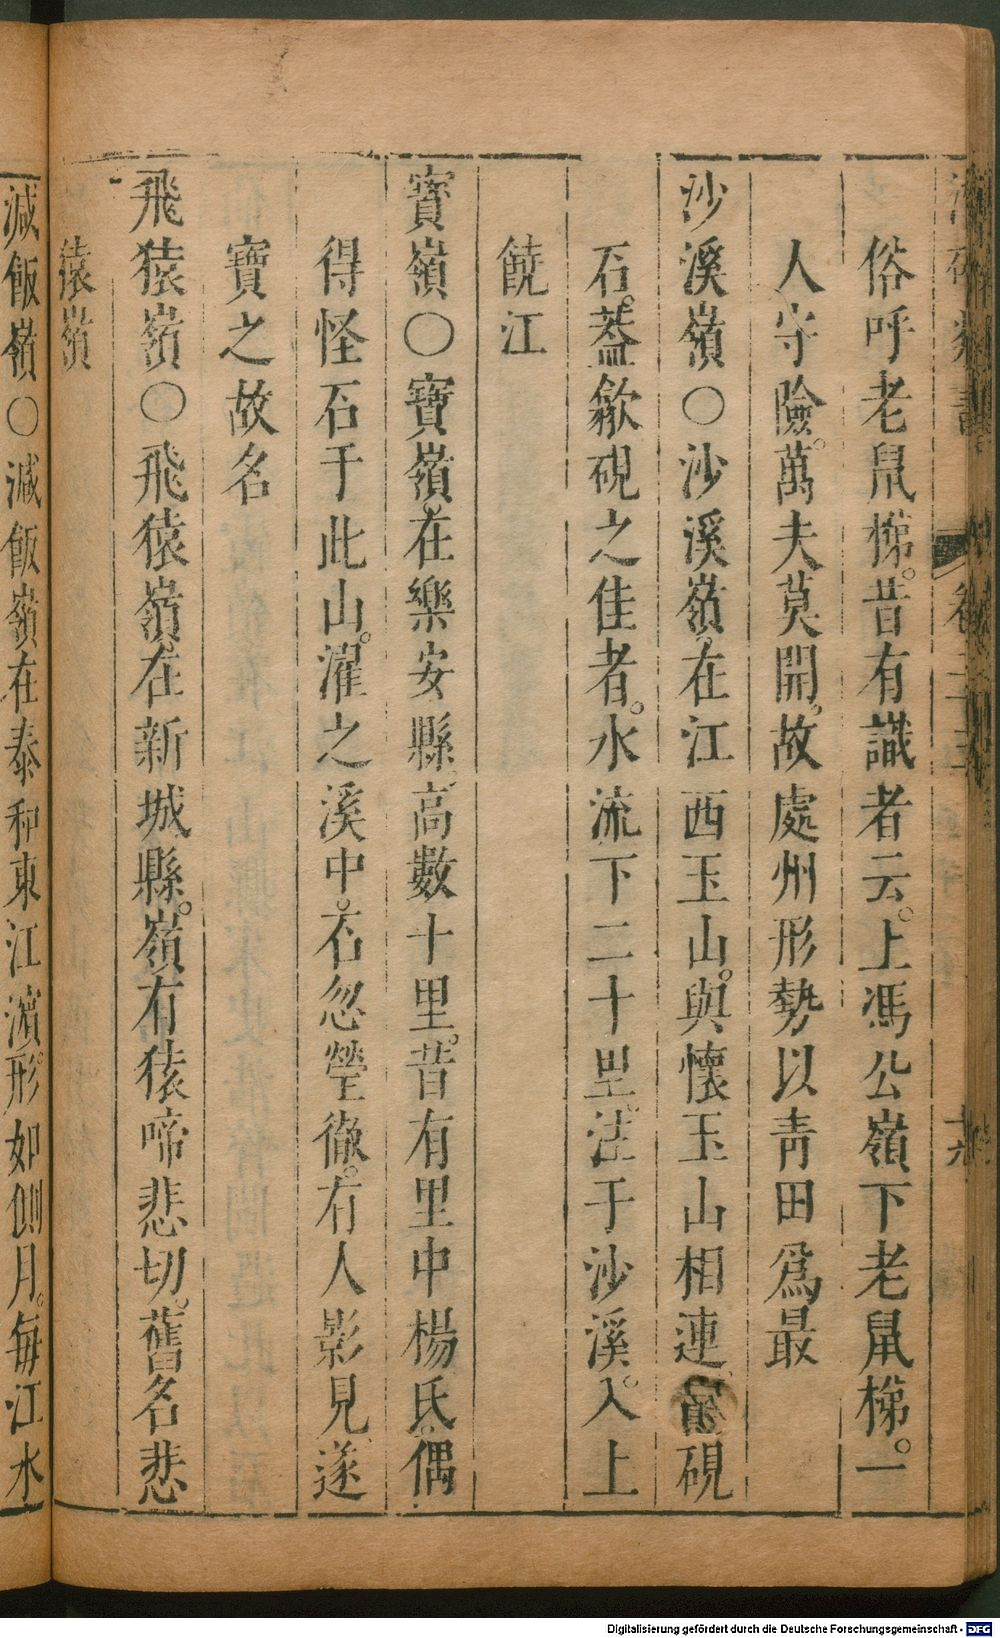 俗呼老鼠梯。昔有識者云。上馮公嶺下老鼠梯。一
人守險。萬夫莫開。故處州形勢以青田爲最
沙溪嶺○沙溪嶺。在江西玉山。與懷玉山相連。硯
石。蓋歙硯之佳者。水流下二十里。注于沙溪。入上
饒江
寶嶺○寶嶺。在樂安縣。高數十里。昔有里中楊氏。偶
得怪石于此山。濯之溪中。石忽瑩徹。有人影見。遂
寶之故名
飛猿嶺○飛猿嶺。在新城縣。嶺有猿啼悲切。舊名悲
猿嶺
減飯嶺○減飯嶺在泰和東江濱。形如側月。每江水
Digitalisierung gefördert durch die Deutsche Forschungsgemeinschaft - DFG